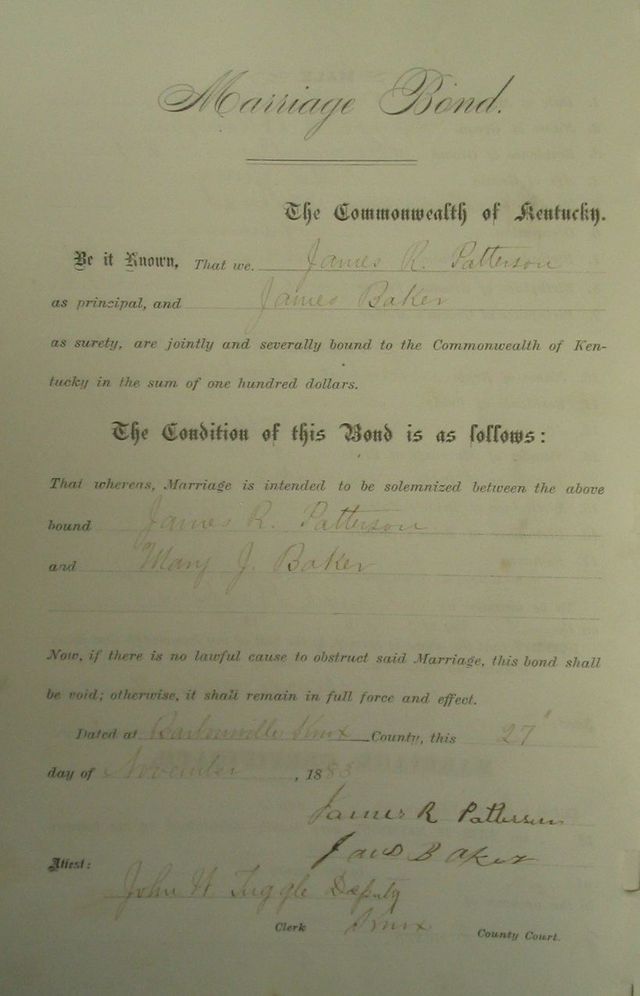 Marriage Bond.
The Commonwealth of Kentucky.
Be it Known, That we. James R. Patterson
as principal, and James Baker
as surety, are jointly and severally bound to the Commonwealth of Ken-
tucky in the sum of one hundred dollars.
The Condition of this Bond is as follows:
That whereas, Marriage is intended to be solemnized between the above
bound James R. Patterson
and Mary J. Baker
Now, if there is no lawful cause to obstruct said Marriage, this bond shall
be void; otherwise, it shall remain in full force and effect.
Dated at Barbourville Knox County, this 27"
day of November, 1883
James R Patterson
Baker
Attest:
John W Tuggle Deputy
Clerk Knox County Court.